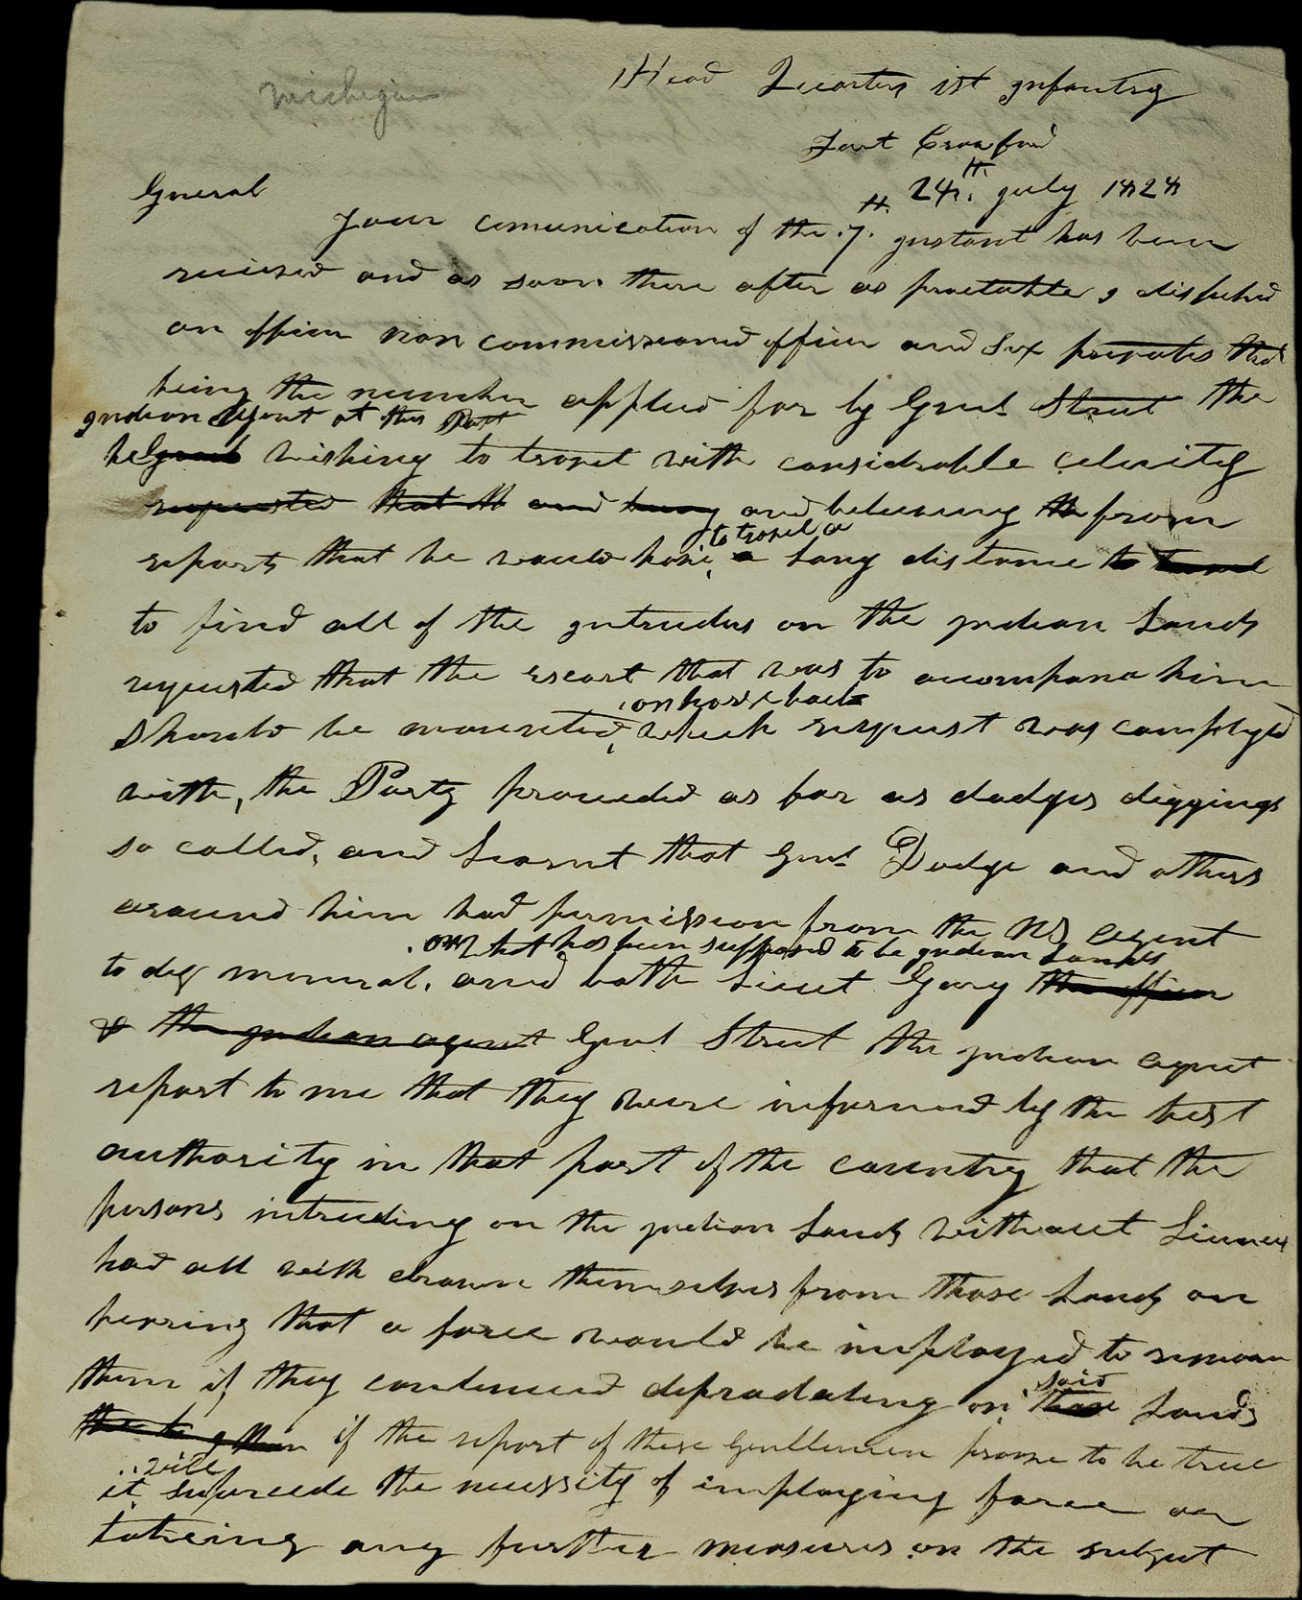 Michigan
Head Quarters 1st Infantry
Fort Crawford
24th. July 1828
General
Your comunication of the 7th. Instant has been
recieved and as soon there after as practable, I dispatched
an officer non commissioned officer and six privates that
being the number applied for by Genl. Street the
Indian Agent at this Post
he Genl wishing to travel with considrable celerity
requested that th and being and believing th from
reports that he would have, a long distance to travel
to travel a
to find all of the intruders on the Indian Lands
requested that the escort that was to accompana him
on horse back
should be mounted, which request was complyed
with, the Party proceeded as far as dodges diggings
so called, and learnt that Genl. Dodge and others
around him had permission from the agent
on what has been supposed to be Indian Lands
to dig mineral. and both Lieut Gary the officer
& the Indian agent Genl Street the Indian agent
report to me that they were informed by the best
authority in that part of the country that the
persons intruding on the Indian Lands without Licences
had all with drawn themselves from those Lands on
hearing that a force would be imployed to remove
them if they continued depradating on those Lands
said
if the report of these Gentlemen prove to be true
will
it supercede the necessity of imploying force or
takeing any further measures on the subject